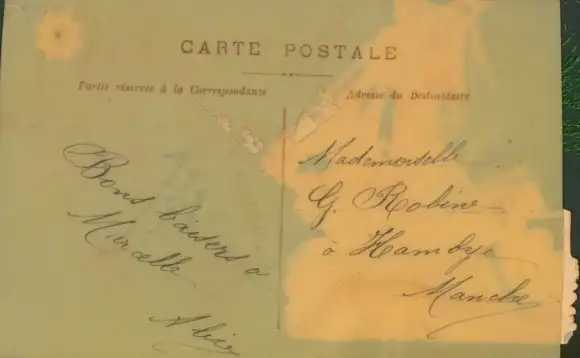 CARTE POSTALE
Partie réservée à la Correspondance
Adresse du Destinataire
Bons baisers à
Marcelle
Alice
Mademoiselle
G. Robine
à Hambye
Manche